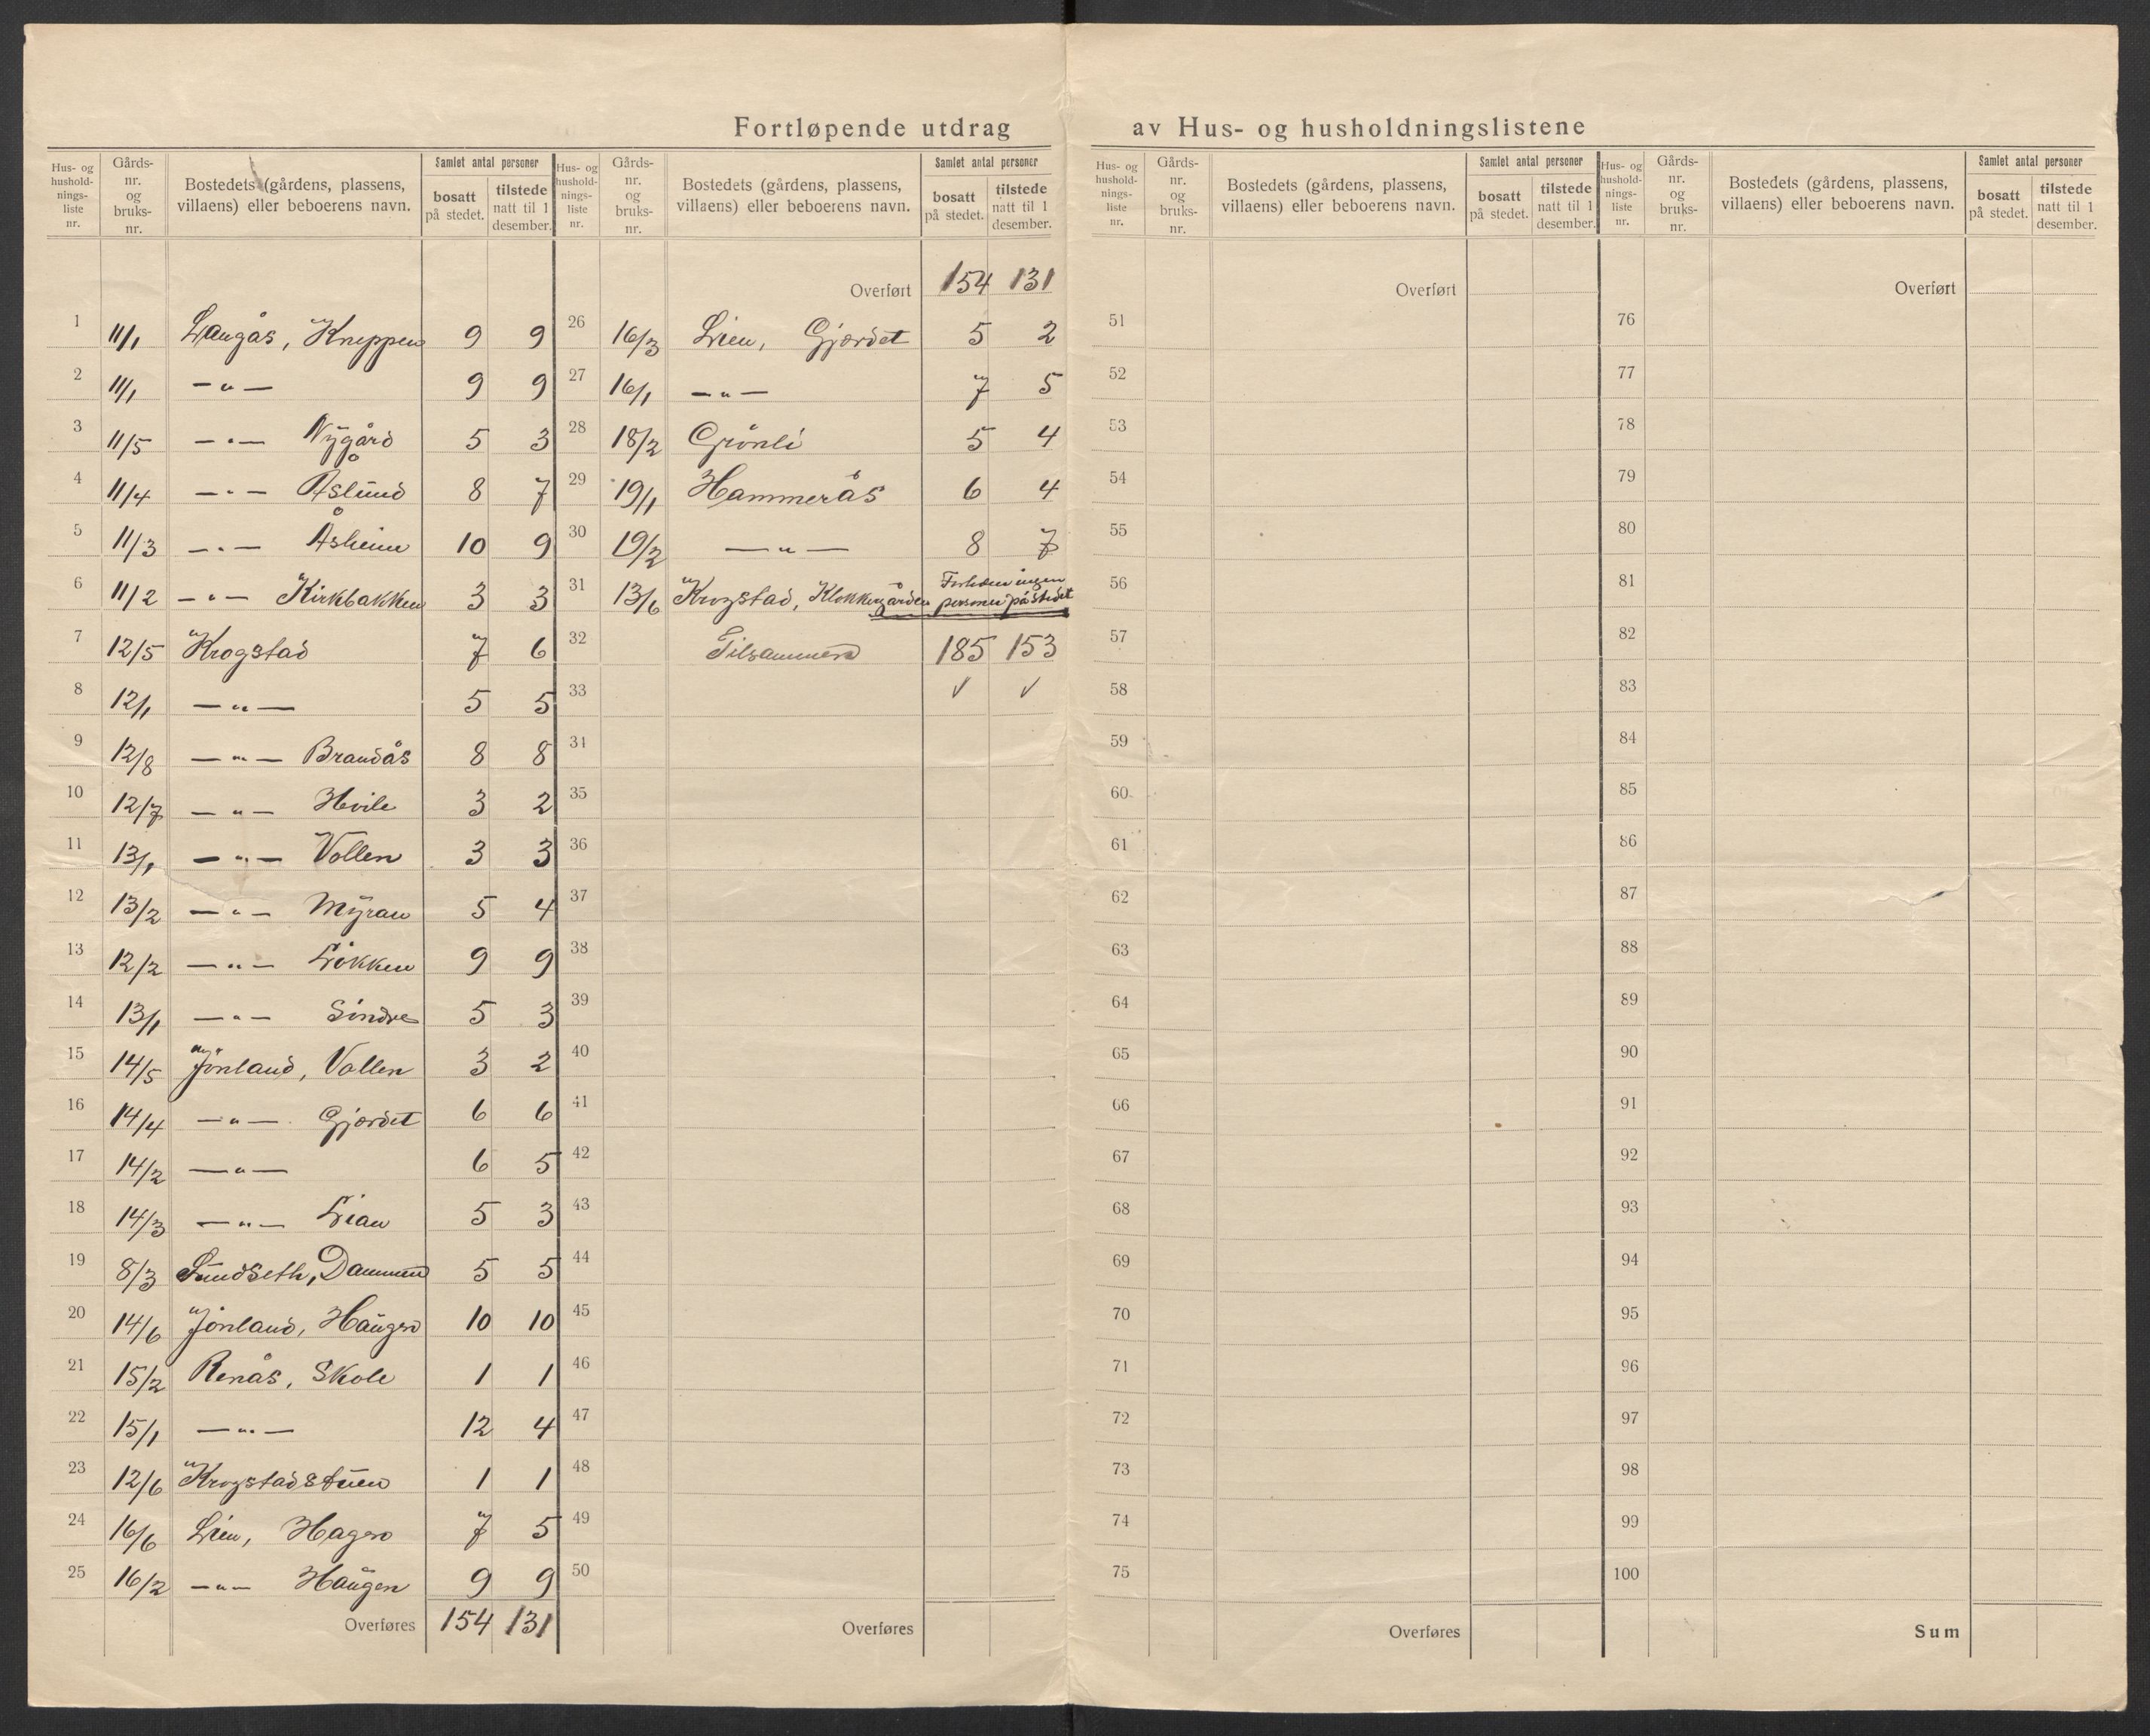 Fortløpende utdrag av Hus- og husholdningslistene
Hus- og husholdnings-liste nr. | Gårds-nr. og bruks-nr. | Bostedets (gårdens, plassens, villaens) eller beboerens navn. | Samlet antal personer | bosatt på stedet. | tilstede natt til 1 desember.
1 11/1 Langås, Kneppen 9 9
2 11/1 —„— 9 9
3 11/5 —„— Nygård 5 3
4 11/4 —„— Åslund 8 7
5 11/3 —„— Åsheim 10 9
6 11/2 —„— Kirkbakken 3 3
7 12/5 Krogstad 7 6
8 12/1 —„— 5 5
9 12/8 —„— Brandås 8 8
10 12/7 —„— Hvile 3 2
11 13/1 —„— Vollen 3 3
12 13/2 —„— Myran 5 4
13 12/2 —„— Løkken 9 9
14 13/1 —„— Søndre 5 3
15 14/5 Jønland, Vollen 3 2
16 14/4 —„— Gjærdet 6 6
17 14/2 —„— 6 5
18 14/3 —„— Lian 5 3
19 8/3 Sundseth, Dammen 5 5
20 14/6 Jønland, Haugen 10 10
21 15/2 Renås, Skole 1 1
22 15/1 —„— 12 4
23 12/6 Krogstadstuen 1 1
24 16/6 Lien, Hagen 7 5
25 16/2 —„— Haugen 9 9
Overføres 154 131
Hus- og husholdnings-liste nr. | Gårds-nr. og bruks-nr. | Bostedets (gårdens, plassens, villaens) eller beboerens navn. | Samlet antal personer | bosatt på stedet. | tilstede natt til 1 desember.
Overført 154 131
26 16/3 Lien, Gjærdet 5 2
27 16/1 —„— 7 5
28 18/2 Grønli 5 4
29 19/1 Hammerås 6 4
30 19/2 —„— 8 7
31 13/6 Krogstad, Klokkergården Forhden ingen personer på stedet
32 Tilsammen 185 153
33 ✓ ✓
34
35
36
37
38
39
40
41
42
43
44
45
46
47
48
49
50
Overføres
Hus- og husholdnings-liste nr. | Gårds-nr. og bruks-nr. | Bostedets (gårdens, plassens, villaens) eller beboerens navn. | Samlet antal personer | bosatt på stedet. | tilstede natt til 1 desember.
Overført
51
52
53
54
55
56
57
58
59
60
61
62
63
64
65
66
67
68
69
70
71
72
73
74
75
Overføres
Hus- og husholdnings-liste nr. | Gårds-nr. og bruks-nr. | Bostedets (gårdens, plassens, villaens) eller beboerens navn. | Samlet antal personer | bosatt på stedet. | tilstede natt til 1 desember.
Overført
76
77
78
79
80
81
82
83
84
85
86
87
88
89
90
91
92
93
94
95
96
97
98
99
100
Sum